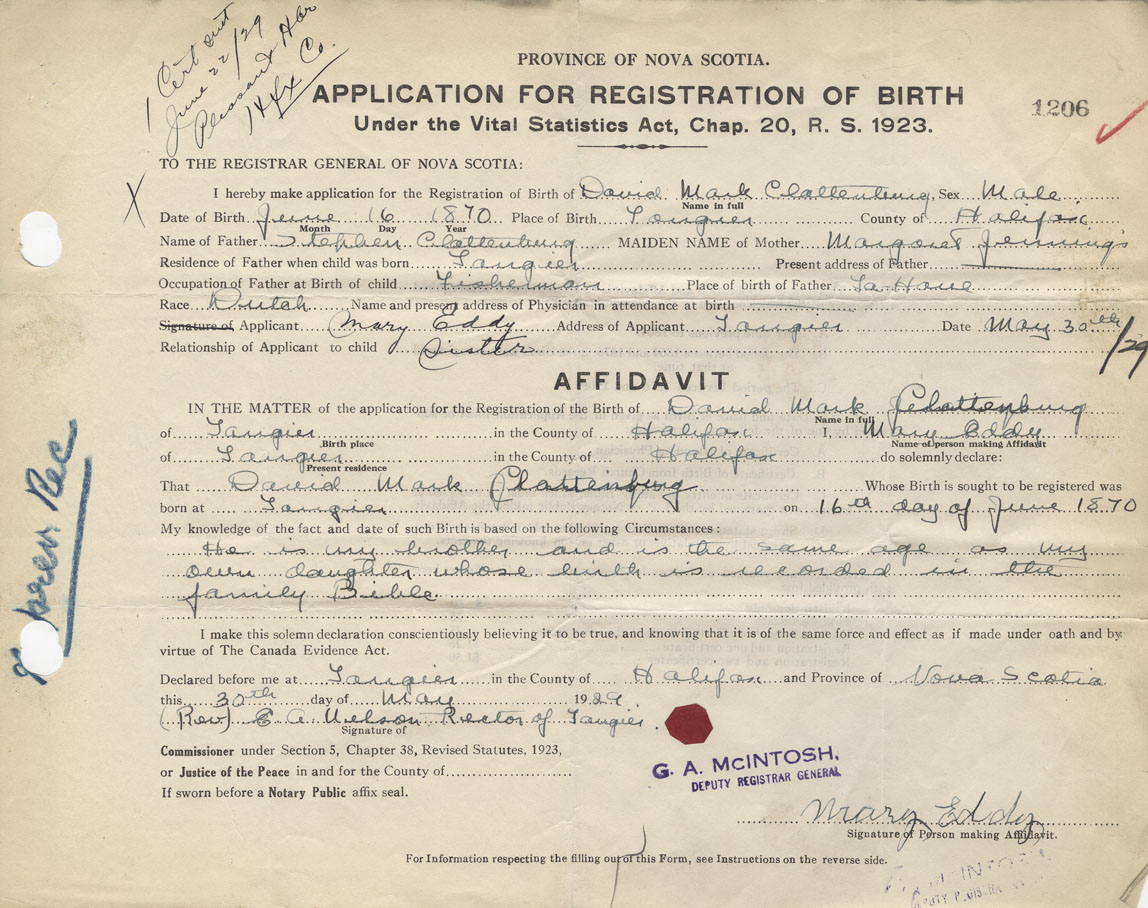 1 Cert sent
June 22/29
Pleasant Hbr
Hfx Co.
PROVINCE OF NOVA SCOTIA.
APPLICATION FOR REGISTRATION OF BIRTH
1206
Under the Vital Statistics Act, Chap. 20, R. S. 1923.
TO THE REGISTRAR GENERAL OF NOVA SCOTIA:
X
I hereby make application for the Registration of Birth of David Mark Clattenburg, Sex Male
Name in full
Date of Birth June 16 1870 Place of Birth Tangier County of Halifax
Month Day Year
Name of Father Stephen Clattenburg MAIDEN NAME of Mother Margaret Jennings
Residence of Father when child was born Tangier Present address of Father
Occupation of Father at Birth of child Fisherman Place of birth of Father La Have
Race Dutch Name and present address of Physician in attendance at birth
Signature of Applicant Mary Eddy Address of Applicant Tangier Date May 30th /29
Relationship of Applicant to child Sister
AFFIDAVIT
IN THE MATTER of the application for the Registration of the Birth of David Mark Clattenburg
Name in full
of Tangier in the County of Halifax I, Mary Eddy
Birth place Name of person making Affidavit
of Tangier in the County of Halifax do solemnly declare:
Present residence
That David Mark Clattenburg Whose Birth is sought to be registered was
born at Tangier on 16th day of June 1870
My knowledge of the fact and date of such Birth is based on the following Circumstances:
He is my brother and is the same age as my
own daughter whose birth is recorded in the
family Bible.
I make this solemn declaration conscientiously believing it to be true, and knowing that it is of the same force and effect as if made under oath and by
virtue of The Canada Evidence Act.
Declared before me at Tangier in the County of Halifax and Province of Nova Scotia
this 30th day of May 1929
(Rev) E A Nelson Rector of Tangier.
Signature of
Commissioner under Section 5, Chapter 38, Revised Statutes, 1923,
or Justice of the Peace in and for the County of
If sworn before a Notary Public affix seal.
G. A. McINTOSH,
DEPUTY REGISTRAR GENERAL
Mary Eddy
Signature of Person making Affidavit.
For Information respecting the filling out of this Form, see Instructions on the reverse side.
Rec